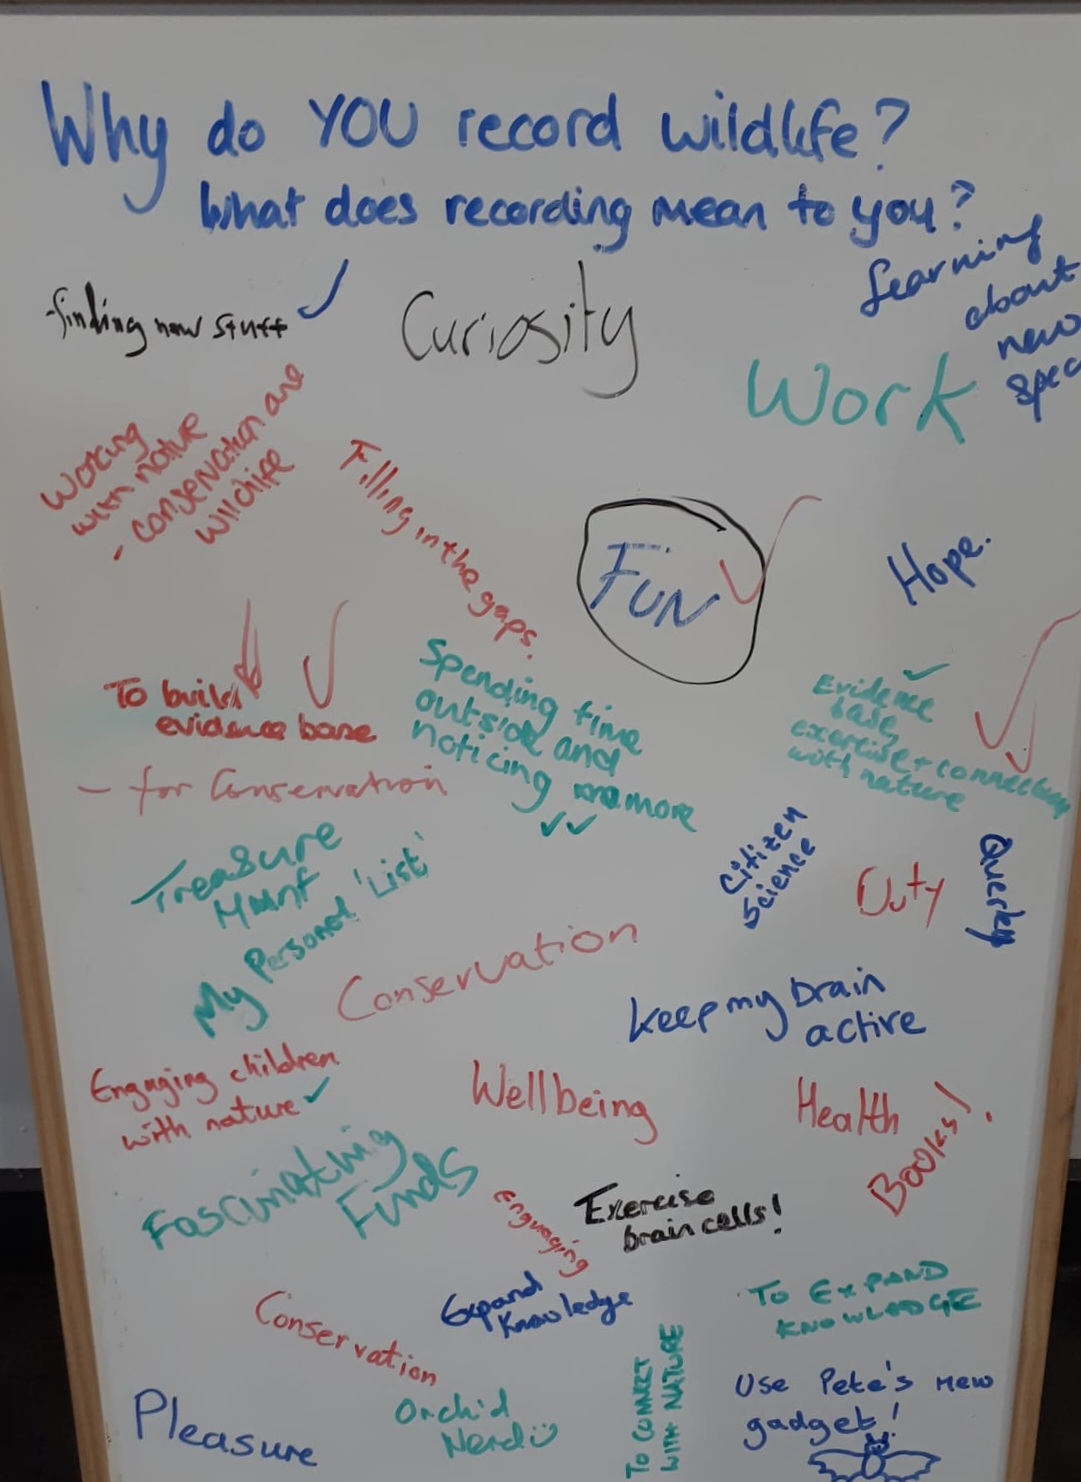 Why do YOU record wildlife?
What does recording mean to you?
-finding new stuff
Curiosity
Learning
about
new
spec
Work
working
with native
conservation are
wildlife
Filling in the gaps.
FUN
Hope.
To build
evidence base
- for Conservation
Spending time
outside and
noticing more
Evidence
base,
exercise + connection
with nature
Treasure
Hunt
My Personal 'List'
Citizen
Science
Duty
Querky
Conservation
Keep my brain
active
Engaging children
with nature
Wellbeing
Health
Books!
Fascinating
Finds
Engnaging
Exercise
brain cells!
Conservation
Expand
Knowledge
TO EXPAND
KNOWLEDGE
Pleasure
Orchid
Nerd
TO CONNECT
WITH NATURE
Use Pete's new
gadget!